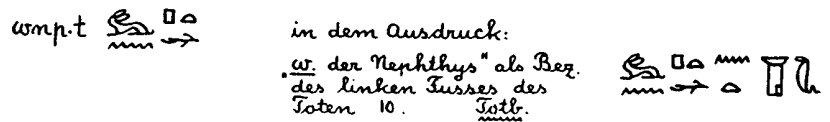 wnp.t in dem Ausdruck:
"w. der Nephthys" als Bez.
des linken Fusses des
Toten 10. Totb.